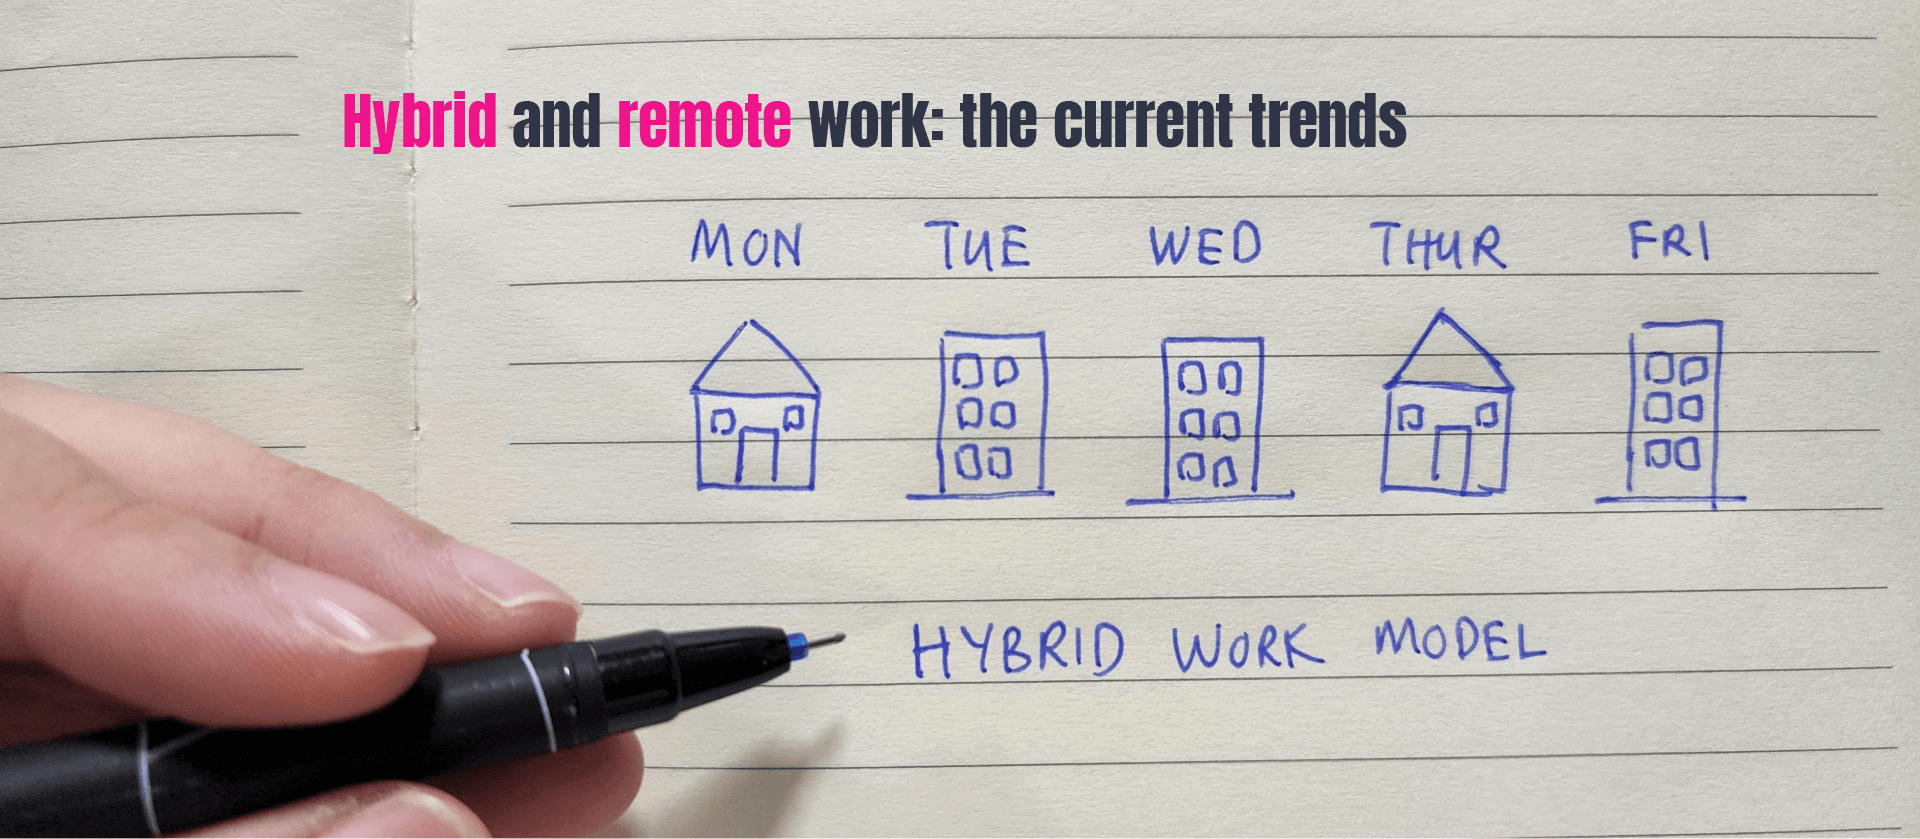 Hybrid and remote work: the current trends
MON TUE WED THUR FRI
HYBRID WORK MODEL